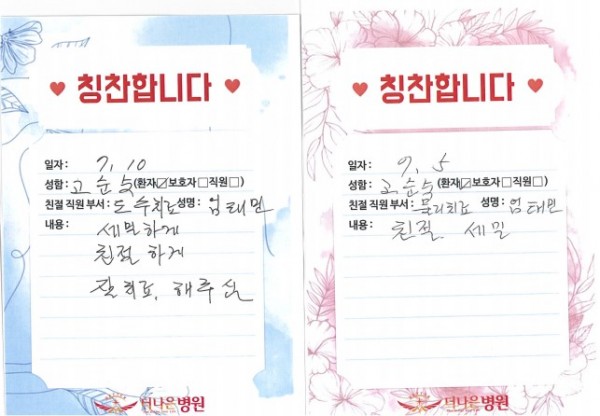 칭찬합니다
일자: 7, 10
성함: 고순숙 (환자☑보호자☐직원☐)
친절 직원 부서: 도수치료 성명: 엄태민
내용: 세밀하게
친절하게
잘 치료, 해주심
더나은병원
칭찬합니다
일자: 9, 5
성함: 고순숙 (환자☑보호자☐직원☐)
친절 직원 부서: 물리치료 성명: 엄태민
내용: 친절 세밀
더나은병원